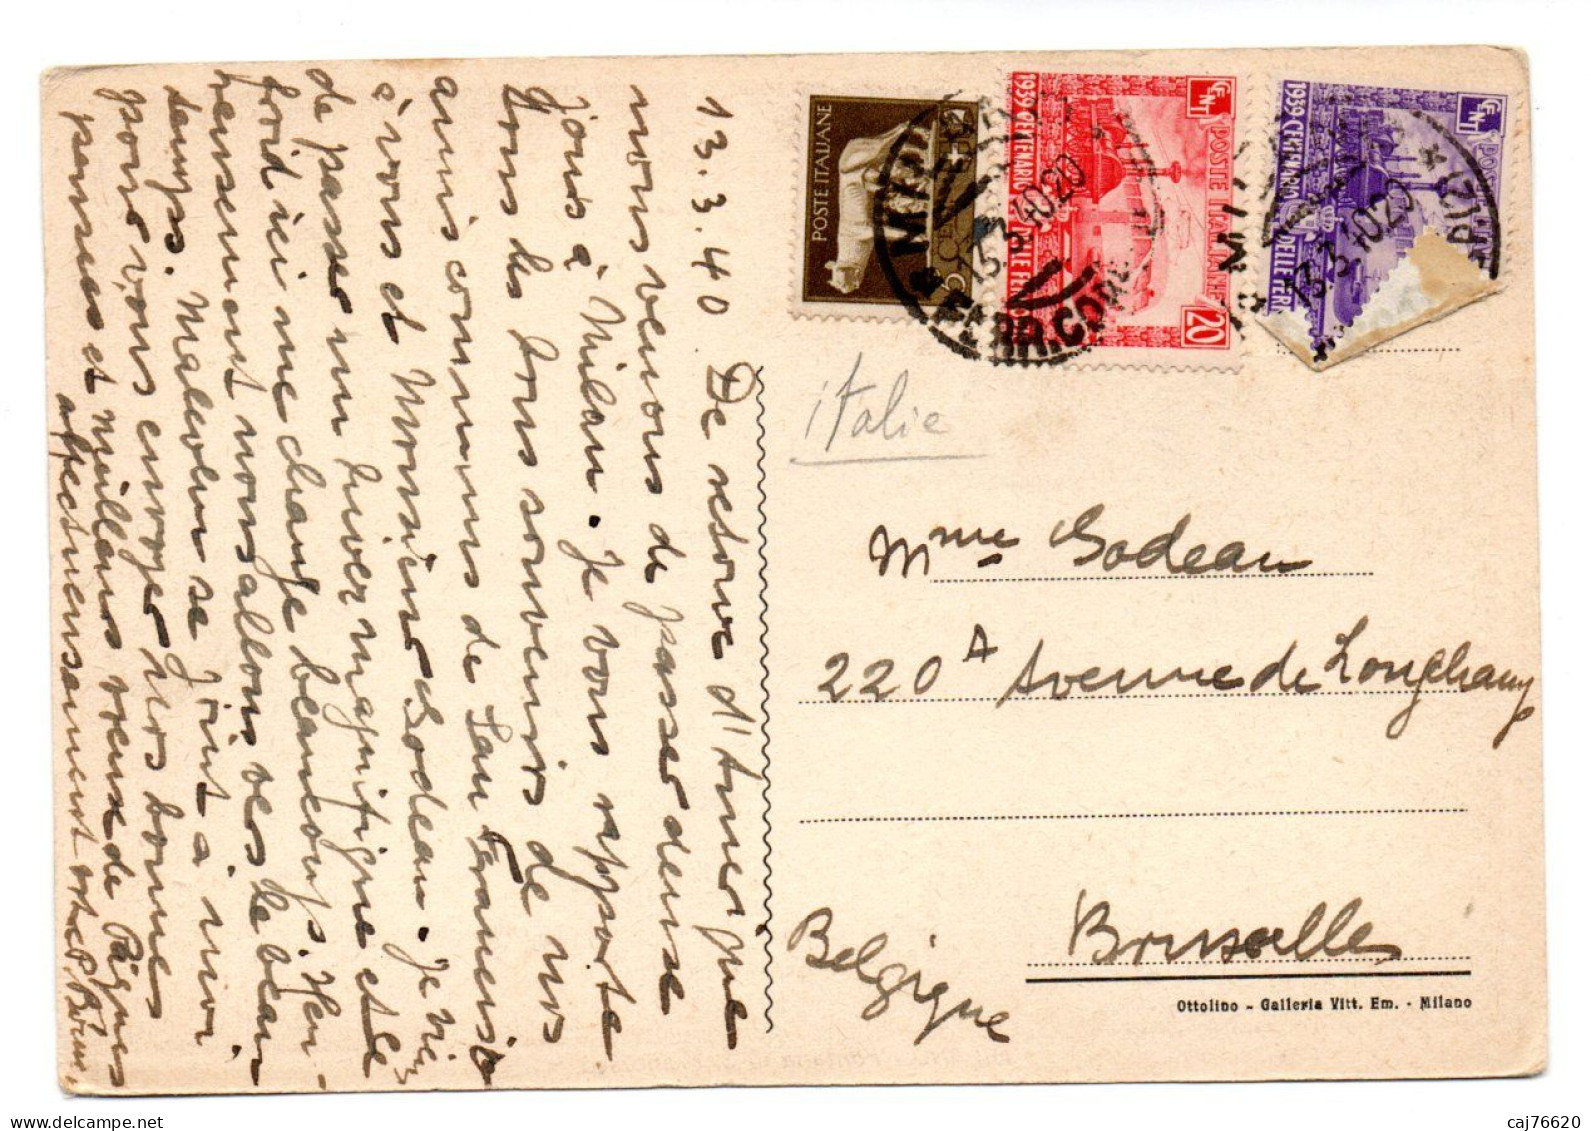 13.3.40 De retour d'Amerique
nous venons de passer deuse
jours à Milan. Je vous rapporte
tous les bons souvenirs de nos
amis communs de San Francisco
à vous et Monsieur Godeau. Je viens
de passer un hiver magnifique et le
froid ici me change beaucoup. Heu-
reusement nous allons vers le beau
temps. Malvolm se joint à moi
pour vous envoyer nos bonnes
pensées et meilleurs voeuse de Pâques
affectueusement
POSTE ITALIANE
5
CENT
1939 CENTENARIO DELLE FERROVIE
POSTE ITALIANE
CENT
20
1939 CENTENARIO DELLE FER
POSTE
CENT
MILANO
13.3.40 20
FERR. CORR.
MILANO
13.3.40 20
italie
Mme Godeau
220 A Avenue de Longchamp
Bruxelles
Belgique
Ottolino - Galleria Vitt. Em. - Milano
caj76620